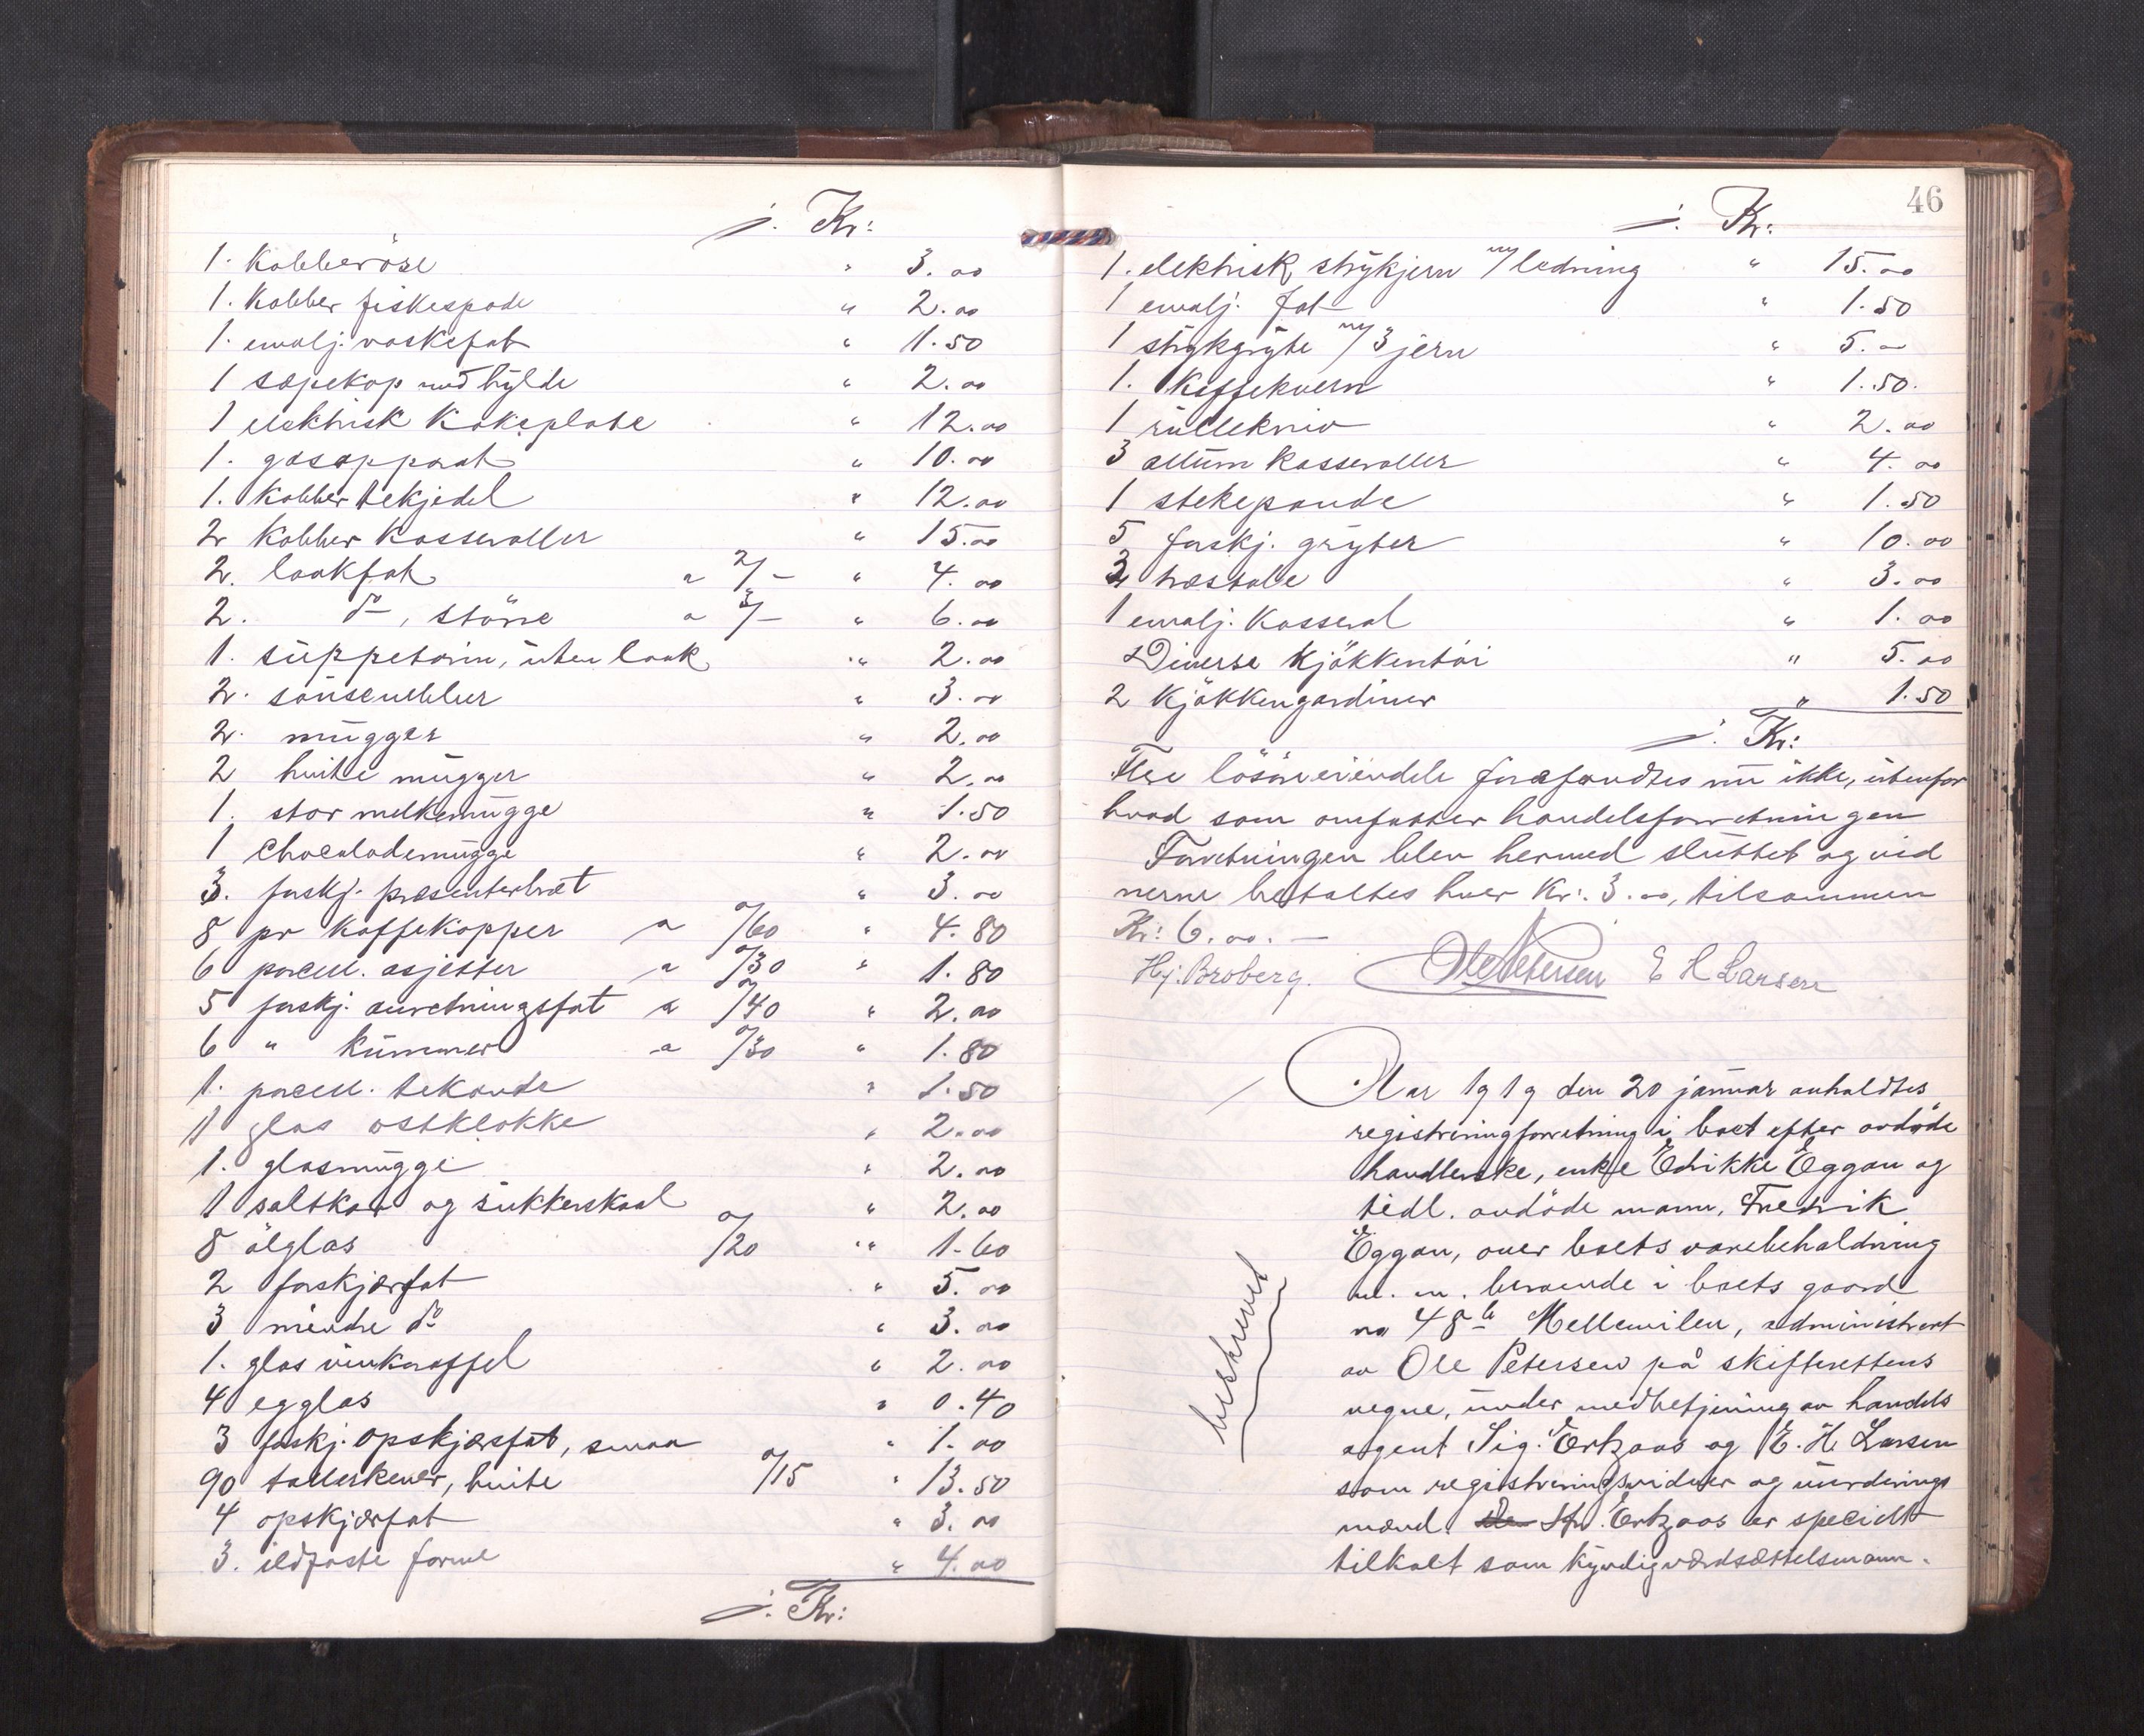 j. Kr:
1. Kobberöse " 3.00
1. Kobber fiskespade " 2.00
1. emalj. vaskefat " 1.50
1 sæpekop med hylde " 2.00
1 elektrisk Kokeplate " 12.00
1. gasapparat " 10.00
1. Kobber tekjedel " 12.00
2 Kobber Kasseroller " 15.00
2. lookfat a 2/- " 4.00
2. do, större a 3/- " 6.00
1. suppeterin, uten look " 2.00
2. sausenebber " 3.00
2. mugger " 2.00
2 hvite mugger " 2.00
1. stor melkemugge " 1.50
1 Chocolademugge " 2.00
3. forskj. præsenterbræt " 3.00
8 pr Kaffekopper a 0/60 " 4.80
6 porcell. asjetter a 0/30 " 1.80
5 forskj. anretningsfat a 0/40 " 2.00
6 " Kummer a 0/30 " 1.80
1. porcell. tekande " 1.50
1 glas ostklokke " 2.00
1. glasmugge " 2.00
1 saltkar og sukkerskaal " 2.00
8 ölglas 0/20 " 1.60
2 forskjærfat " 5.00
3 mindre do " 3.00
1. glas vinkaraffel " 2.00
4 egglas " 0.40
3 forskj. opskjærfat, smaa " 1.00
90 tallerkener, hvite 0/15 " 13.50
4 opskjærfat " 3.00
3. ildfaste forme " 4.00
j. Kr:
46
j. Kr:
1. elektrisk strykjern m/ledning " 15.00
1 emalj. fat " 1.50
1 strykgryte m/3 jern " 5.-
1. Kaffekvern " 1.50.
1 rullekniv " 2.00
3 allum Kasseroller " 4.00
1 stekepande " 1.50
5 forskj. gryter " 10.00
3 træstole " 3.00
1 emalj. Kasserol " 1.00
Diverse Kjökkentöi " 5.00
2 Kjökkengardiner " 1.50
j. Kr:
Flere lösöreiendele forefandtes nu ikke, utenfor
hvad som omfatter handelsforretningen
Forretningen blev hermed sluttet og vid
nerne betaltes hver Kr: 3.00, tilsammen
Kr: 6.00. —
Hj. Broberg. Ole Petersen E H Larsen
Aar 1919 den 20 januar anholdtes
registreringforretning i boet efter avdöde
handlerske, enke Edrikke Eggan og
tidl. avdöde mann, Fredrik
Eggan, over boets varebeholdning
m. m. beroende i boets gaard
no 48 b Mellemilen, administrert
av Ole Petersen på skifterettens
vegne, under medbetjening av handels
agent Sig. Ertzaas og E. H. Larsen
som registreringsvidner og vurderings
mænd. Hr. Ertzaas er specielt
tilkalt som kyndig værdsættelsesmann.
beskrevet